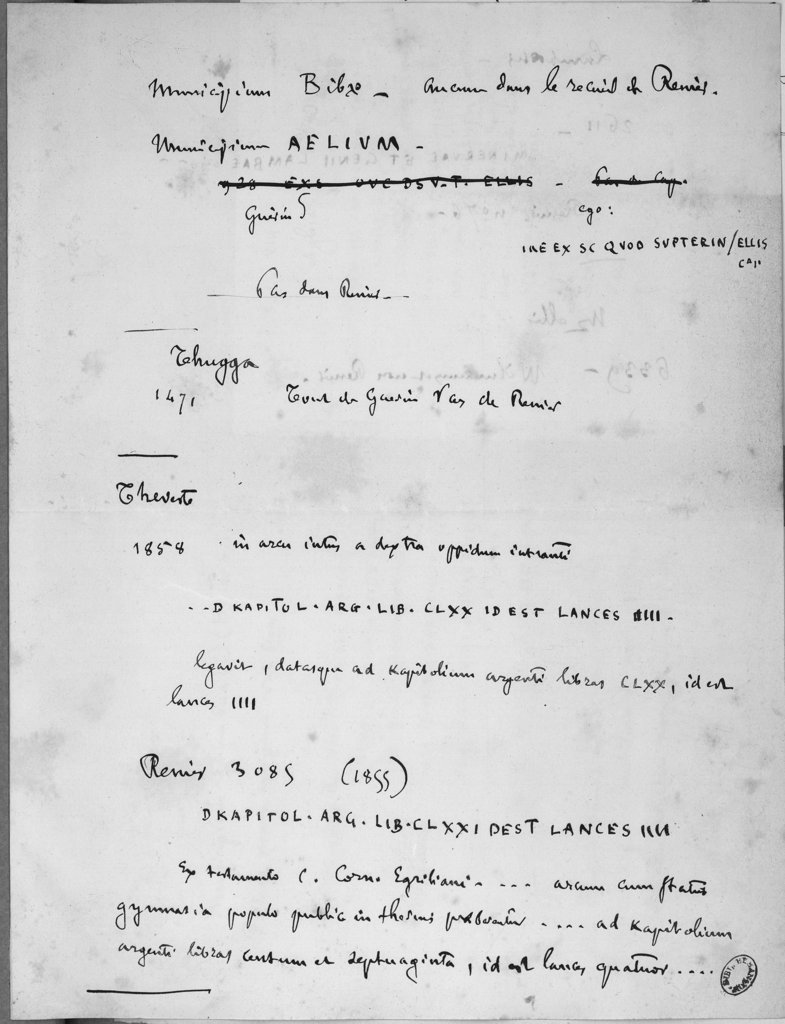 Municipium Bibxo — aucun dans le recueil de Renier.
Municipium AELIUM —
928 EX S — Pas de Cap.
Guérin 5 ego :
INE EX SC QUOD SUPTERIN/ELLIS
CAP
— Pas dans Renier —
Thugga
1471 Tout de Guérin Pas de Renier
Theveste
1858 in arcu intus a dextra oppidum intranti
.. D KAPITOL . ARG . LIB . CLXX ID EST LANCES IIII .
legavit, datasque ad Kapitolium argenti libras CLXX, id est
lances IIII
Renier 3085 (1855)
D KAPITOL . ARG . LIB . CLXX I DEST LANCES IIII
Ex testamento C. Corn. Egriliani . ... arcum cum statuis
gymnasia populo public in thermis praeberentur .... ad Kapitolium
argenti libras centum et septuaginta, id est lances quatuor ....